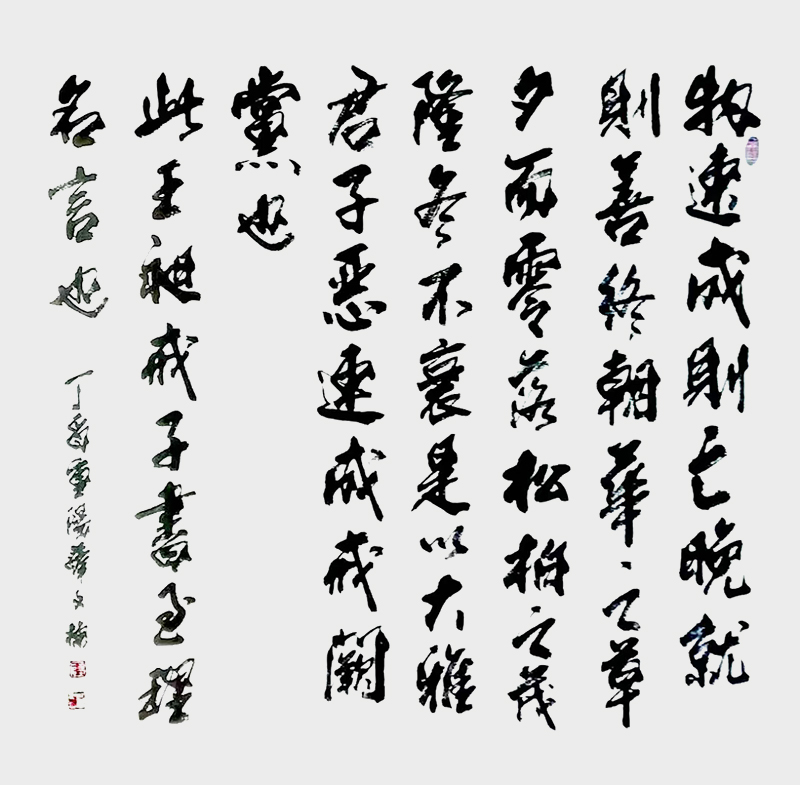 物速成則亡晚就
則善終朝華之草
夕而零落松柏之茂
隆冬不衰是以大雅
君子惡速成戒闕
黨也
此王昶戒子書至理
名言也 丁酉重陽華文